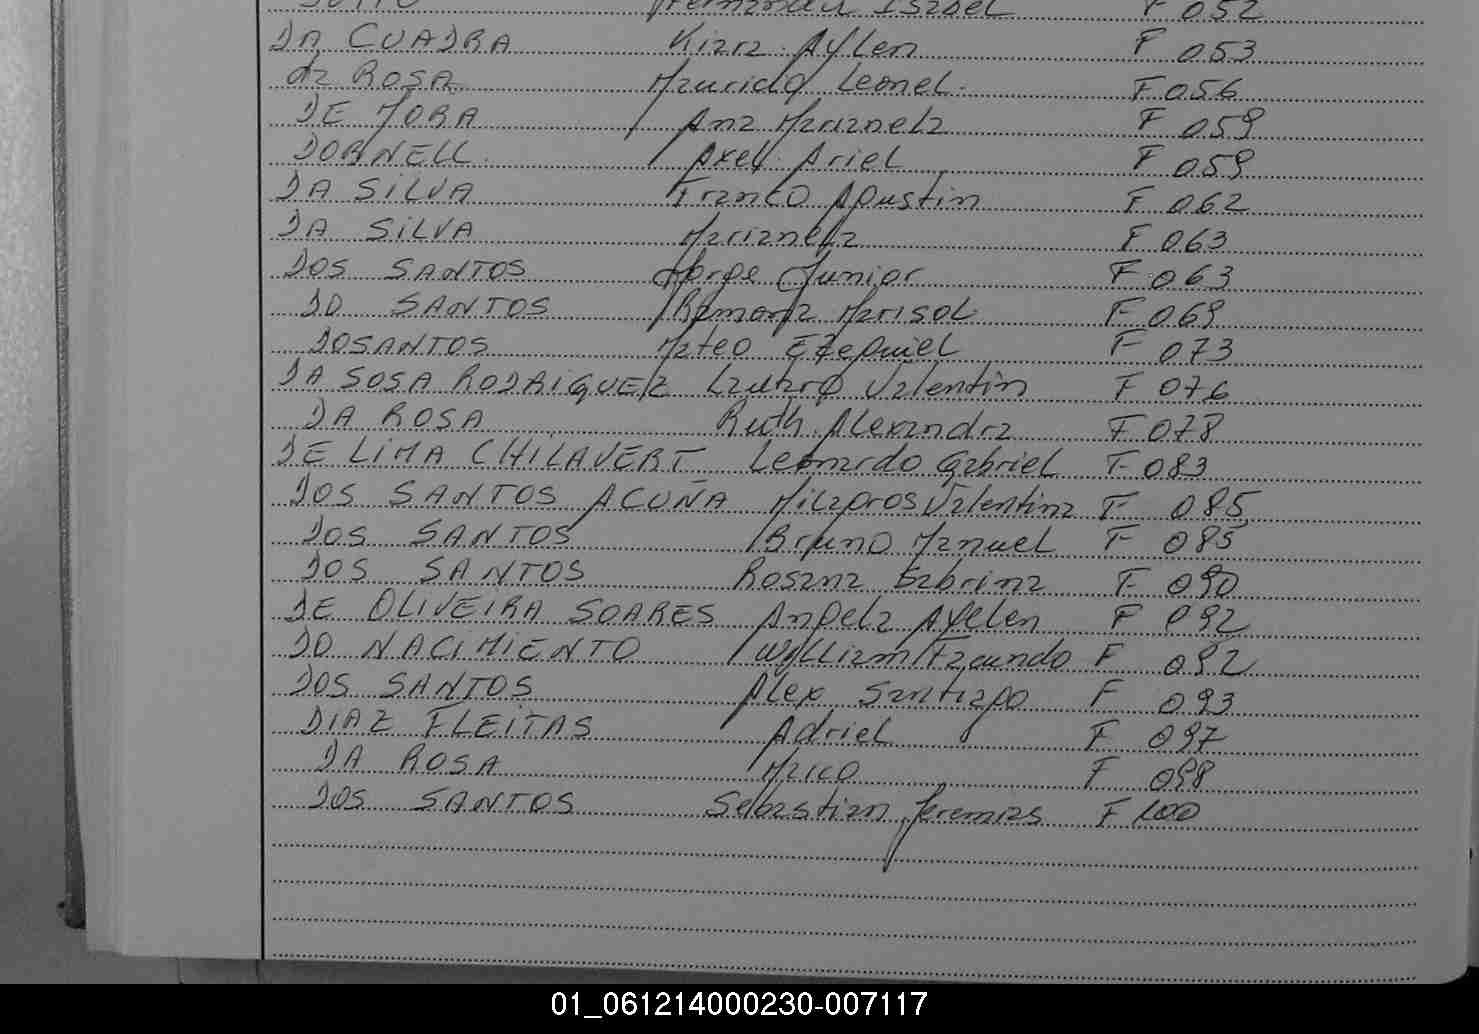 Isabel F 052
DA CUADRA Kiara Aylen F 053
da ROSA Mauricio Leonel F 056
DE MORA Ana Marianela F 059
DORNELL Axel Ariel F 059
DA SILVA Franco Agustin F 062
DA SILVA Marianela F 063
DOS SANTOS Jorge Junior F 063
DO SANTOS Ramona Marisol F 069
DOSANTOS Mateo Ezequiel F 073
DA SOSA RODRIGUEZ Lautaro Valentin F 076
DA ROSA Ruth Alexandra F 078
DE LIMA CHILAVERT Leonardo Gabriel F 083
DOS SANTOS ACUÑA Milagros Valentina F 085
DOS SANTOS Bruno Manuel F 085
DOS SANTOS Rosana Sabrina F 090
DE OLIVEIRA SOARES Angela Ayelen F 092
DO NACIMIENTO William Facundo F 092
DOS SANTOS Alex Santiago F 093
DIAZ FLEITAS Adriel F 097
DA ROSA Marco F 098
DOS SANTOS Sebastian Jeremias F 100
01_061214000230-007117